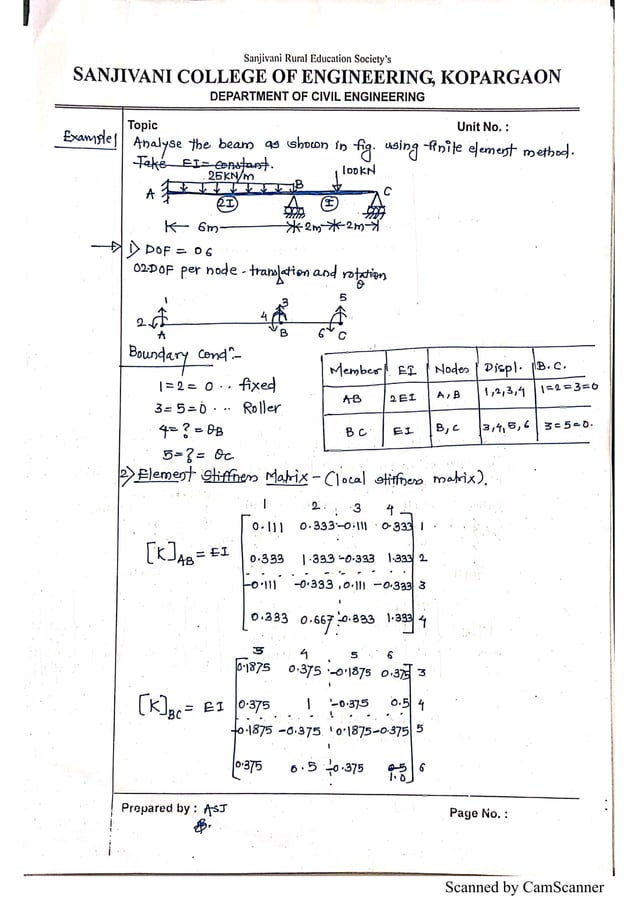 Sanjivani Rural Education Society's
SANJIVANI COLLEGE OF ENGINEERING, KOPARGAON
DEPARTMENT OF CIVIL ENGINEERING
Topic Unit No. :
Example 1 Analyse the beam as shown in fig. using finite element method.
Take EI = constant.
25KN/m B 100KN
A 2I I C
6m 2m 2m
1) DOF = 06
02 DOF per node - translation and rotation
Δ θ
1 3 5
2 4 6
A B C
Boundary condⁿ:-
1=2=0 .. fixed
3=5=0 ... Roller
4=? = θB
5=? = θc
Member EI Nodes Displ. B.C.
AB 2EI A,B 1,2,3,4 1=2=3=0
BC EI B,C 3,4,5,6 3=5=0.
2) Element Stiffness Matrix - (local stiffness matrix).
1 2 3 4
0.111 0.333 -0.111 0.333 1
[K]AB = EI 0.333 1.333 -0.333 1.333 2
-0.111 -0.333 0.111 -0.333 3
0.333 0.667 -0.333 1.333 4
3 4 5 6
0.1875 0.375 -0.1875 0.375 3
[K]BC = EI 0.375 1 -0.375 0.5 4
-0.1875 -0.375 0.1875 -0.375 5
0.375 0.5 -0.375 0.5 6
1.0
Prepared by : ASJ
Page No. :
Scanned by CamScanner